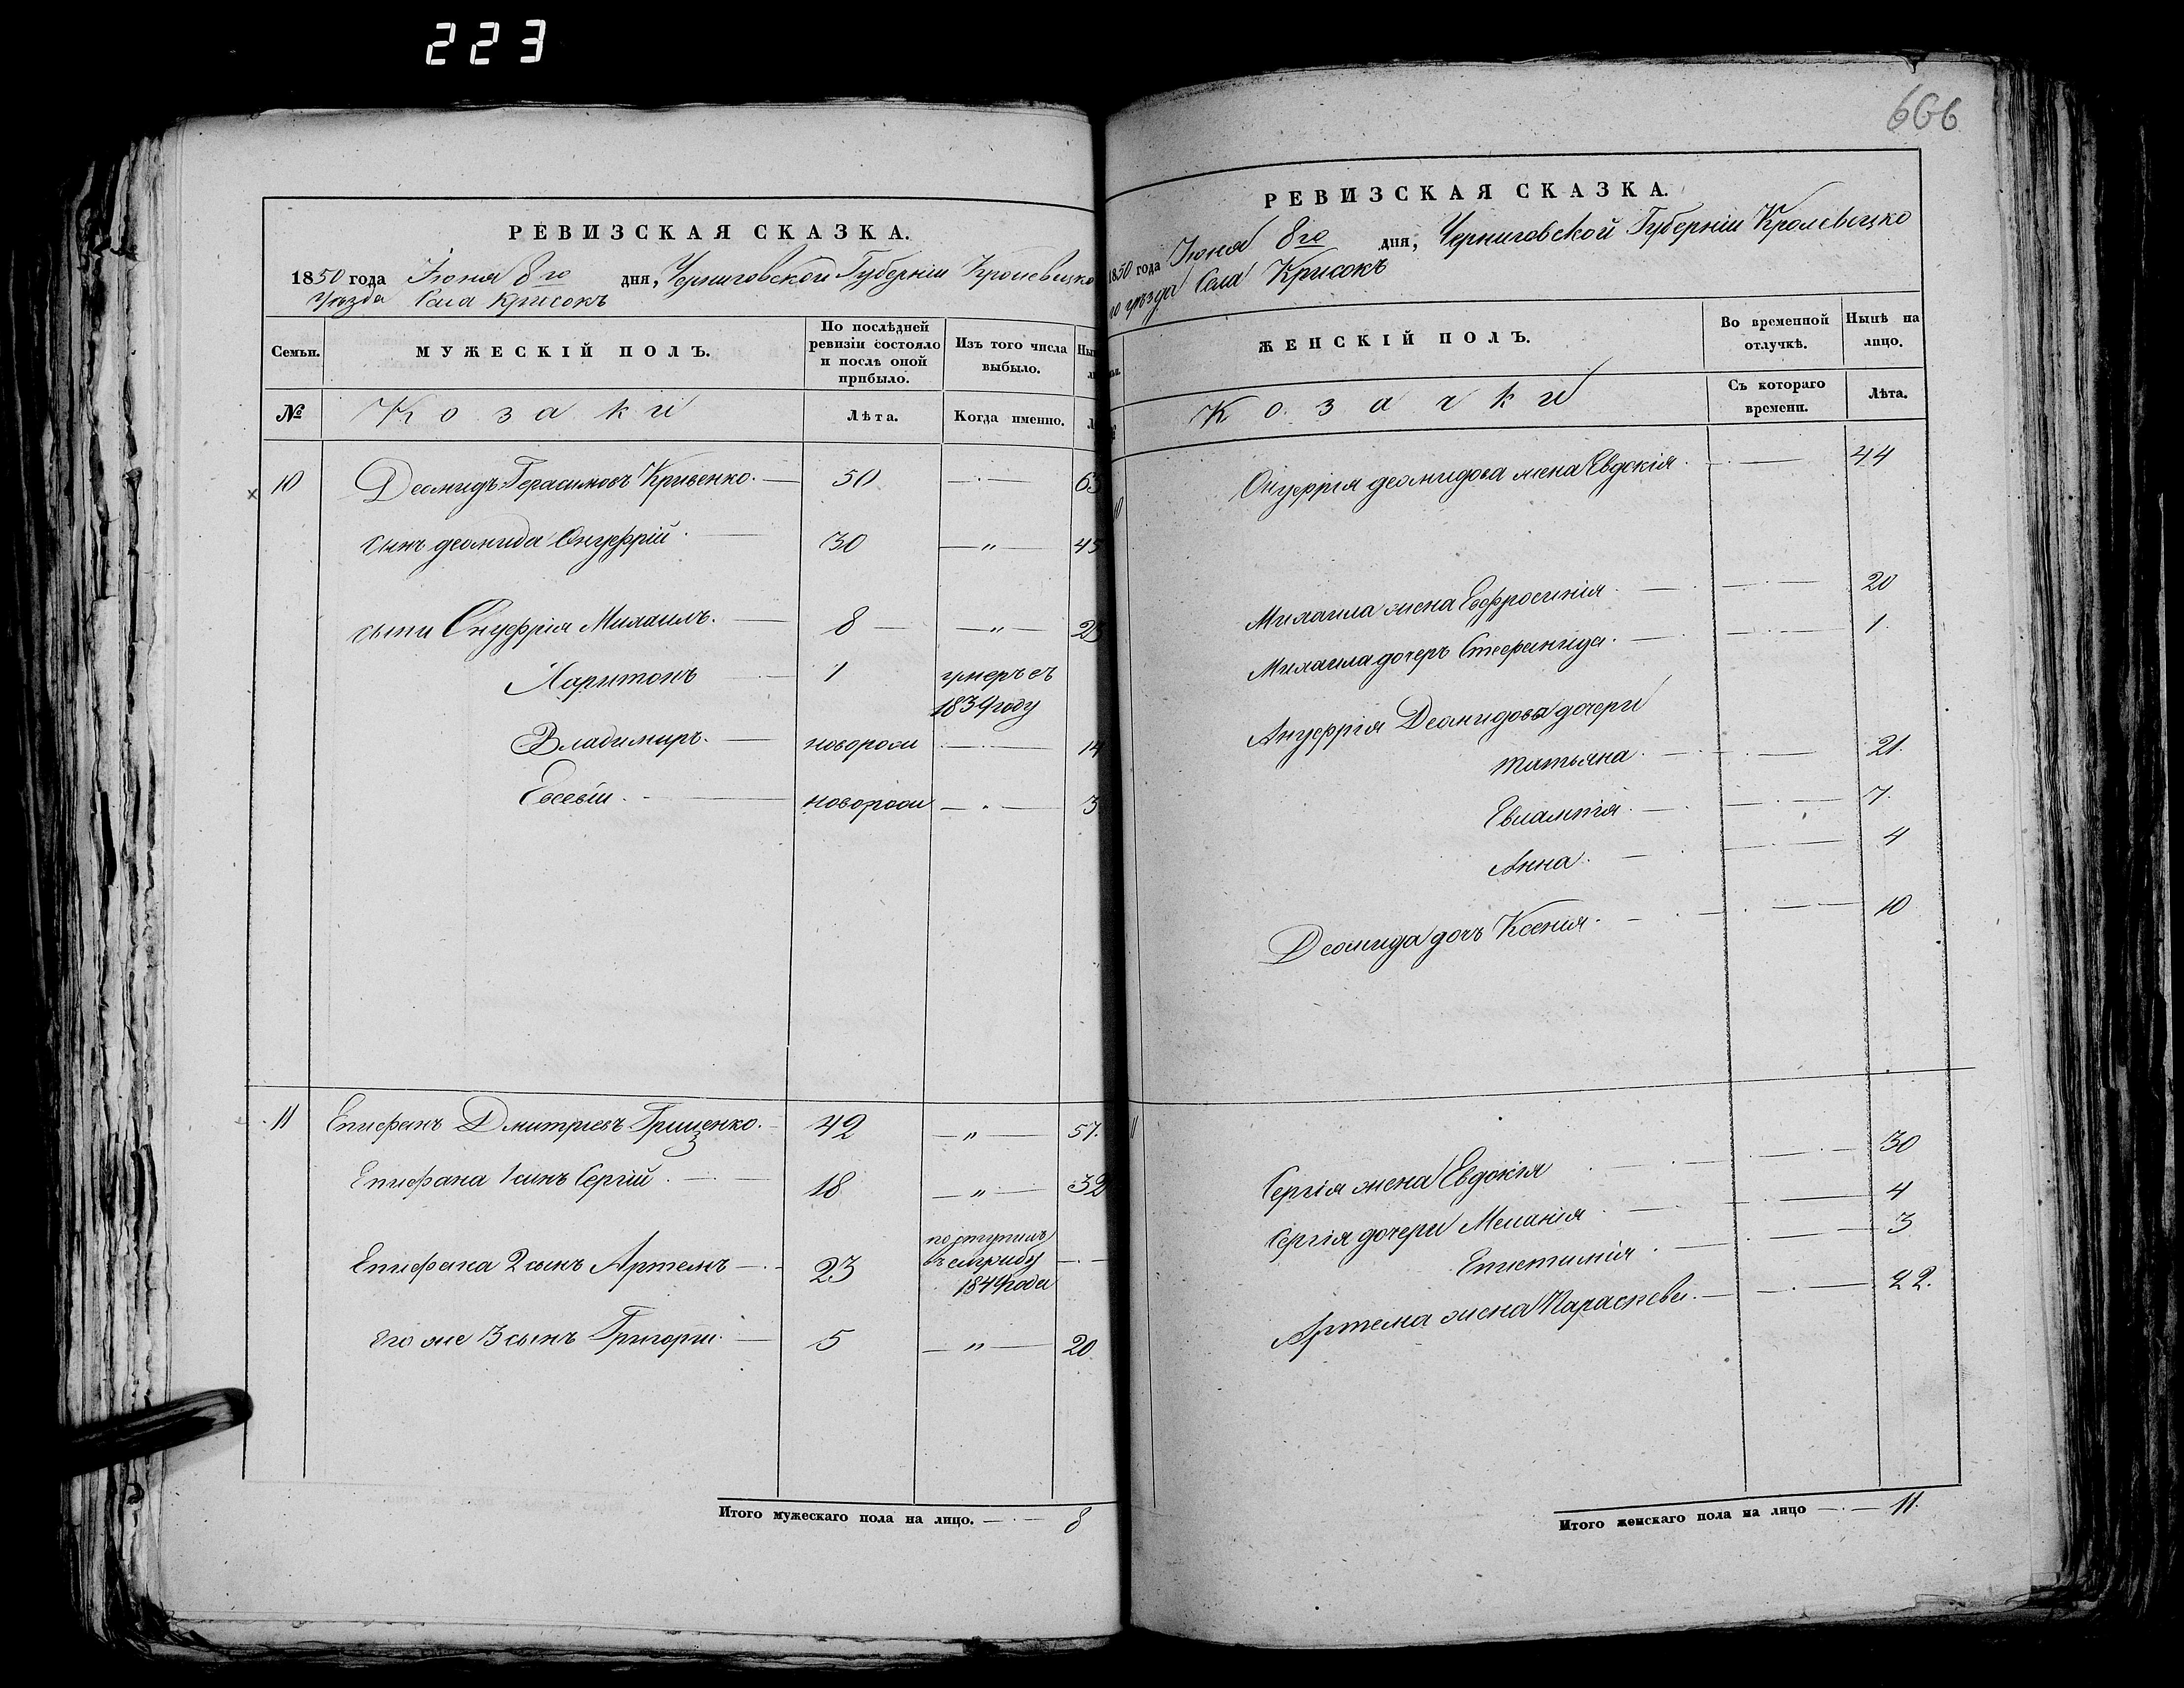 223
РЕВИЗСКАЯ СКАЗКА.
1850 года Іюня 8го дня, Черниговской Губерніи Кролевецко
уѣзда Села Крисокъ
Семьи. МУЖЕСКІЙ ПОЛЪ. По послѣдней ревизіи состояло и послѣ оной прибыло. Изъ того числа выбыло.
№ Козаки Лѣта. Когда именно.
10 Деомидъ Герасимовъ Кривенко. 50 63
сынъ деомида Онуфрій 30 " 45
сыни Онуфрія Михаилъ. 8 " 23
Харитонъ 1 умеръ въ
1839 году
Владимиръ. новорож 14
Евсевій. новорож 3
11 Епифанъ Дмитріевъ Грищенко. 42 " 57.
Епифана 1 сынъ Сергій 18 " 32
Епифана 2 сынъ Артемъ 23 поступилъ
1849 года
Его же 3 сынъ Григорій. 5 " 20
Итого мужескаго пола на лицо. 8
666
РЕВИЗСКАЯ СКАЗКА.
1850 года Іюня 8го дня, Черниговской Губерніи Кролевецко
го уѣзда Села Крисокъ
ЖЕНСКІЙ ПОЛЪ. Во временной отлучкѣ. Нынѣ на лицо.
Козачки Съ котораго времени. Лѣта.
10 Онуфрія деомидова жена Евдокія. 44
Михаила жена Евфросинія 20
Михаила дочеръ Стефанида. 1.
Ануфрія Деомидова дочери
татьяна 21.
Евлампія 7.
Анна. 4
Деомида дочъ Ксенія. 10
11 Сергія жена Евдокія 30
Сергія дочери Меланія 4
Епистимія 3
Артема жена Параскева. 22.
Итого женскаго пола на лицо 11.